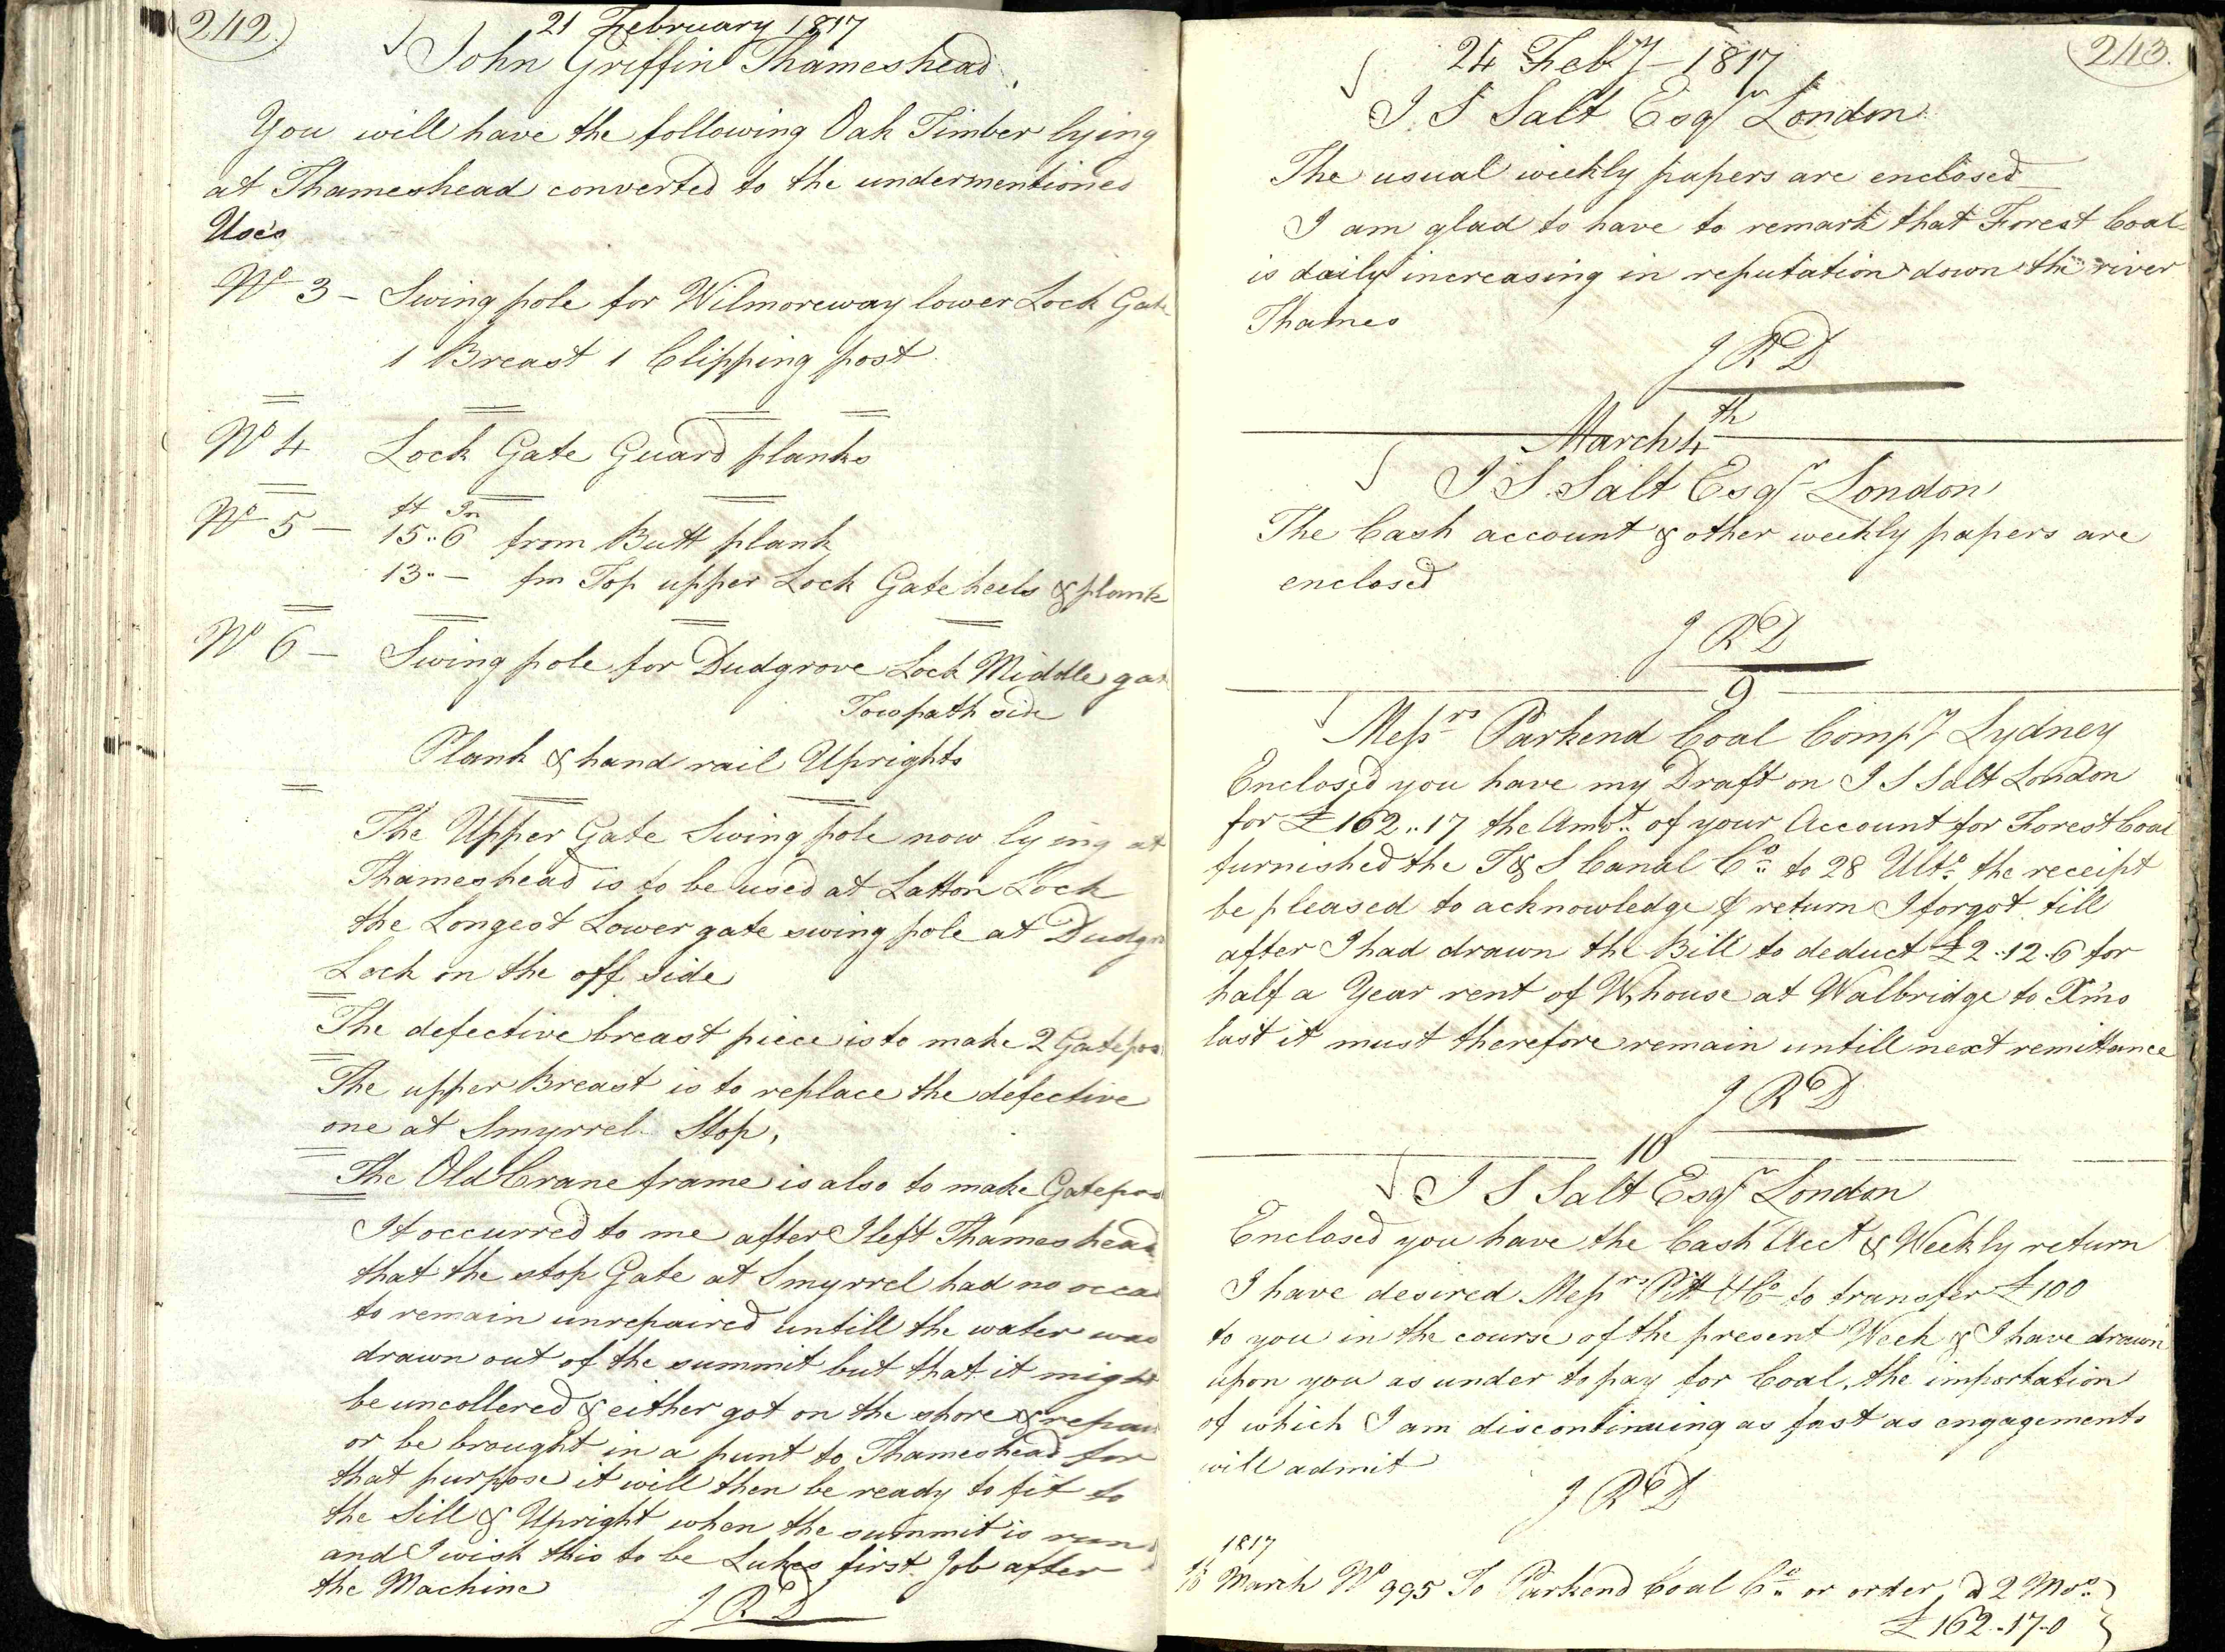 242.
21 February 1817
John Griffin Thameshead
You will have the following Oak Timber lying
at Thameshead converted to the undermentioned
Uses
No 3 - Swing pole for Wilmoreway lower Lock Gate
1 Breast 1 Clipping post
No 4 Lock Gate Guard planks
ft In
No 5 - 15..6 from Butt plank
13.. - fm Top upper Lock Gate heels & plank
No 6 - Swing pole for Dudgrove Lock Middle gat
Towpath side
Plank & hand rail Uprights
The Upper Gate Swing pole now lying at
Thameshead is to be used at Latton Lock
the Longest Lower gate swing pole at Dudgro
Lock on the off side
The defective breast piece is to make 2 Gatepos
The upper Breast is to replace the defective
one at Smyrrel Stop,
The Old Crane frame is also to make Gatepos
It occurred to me after I left Thameshead
that the stop Gate at Smyrrel had no occas
to remain unrepaired untill the water was
drawn out of the summit but that it might
be uncollered & either got on the shore & repair
or be brought in a punt to Thameshead for
that purpose it will then be ready to fit to
the Sill & Upright when the summit is run
and I wish this to be Lukes first Job after
the Machine
J R D
243.
24 Feby - 1817
J S Salt Esqr London
The usual weekly papers are enclosed
I am glad to have to remark that Forest Coal
is daily increasing in reputation down the river
Thames
J R D
March 4th
J S Salt Esqr London
The Cash account & other weekly papers are
enclosed
J R D
9
Messrs Parkend Coal Compy Lydney
Enclosed you have my Draft on J S Salt London
for £162..17 the Amot.. of your Account for Forest Coal
furnished the T & S Canal Co.. to 28 Ulto.. the receipt
be pleased to acknowledge & return I forgot till
after I had drawn the Bill to deduct £2..12.6 for
half a Year rent of Whouse at Walbridge to Xms
last it must therefore remain untill next remittance
J R D
10
J S Salt Esqr London
Enclosed you have the Cash Acct & Weekly return
I have desired Messrs Pitt & Co to transfer £100
to you in the course of the present Week & I have drawn
upon you as under to pay for Coal, the importation
of which I am discontinuing as fast as engagements
will admit
J R D
1817
10 March No 995 To Parkend Coal Co.. or order, a 2 Mos..
£162..17..0